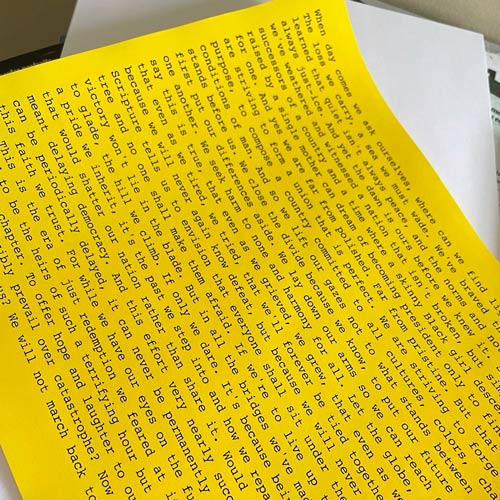 When day comes, we ask ourselves, where can we find
The loss we carry, a sea we must wade. We've br
learned that quiet isn't always peace, and the norms and
always justice. And yet the dawn is ours before we knew it.
we've weathered and witnessed a nation that isn't broken but
successors of a country and a time where a skinny Black girl desc
raised by a single mother can dream of becoming president only to fi
for one. And yes we are far from polished. Far from pristine. But tha
are striving to form a union that is perfect. We are striving to forge
purpose. To compose a country committed to all cultures, colors, cha
conditions of man. And so we lift our gazes not to what stands between
stands before us. We close the divide because we know, to put our future
first put our differences aside. We lay down our arms so we can
one another. We seek harm to none and harmony for all. Let the globe,
say this is true, that even as we grieved, we grew, that even as
that even as we tired, we tried, that we'll forever be tied
because we will never again know defeat but because we will never
Scripture tells us to envision that everyone shall sit under
tree and no one shall make them afraid. If we're to live up
victory won't lie in the blade. But in all the bridges we've made
to glade, the hill we climb. If only we dare. It's because be
a pride we inherit, it's the past we step into and how we repa
that would shatter our nation rather than share it. Would
meant delaying democracy. And this effort very nearly succ
can be periodically delayed, it can never be permanently
this faith we trust. For while we have our eyes on the fu
This is the era of just redemption we feared at
to be the heirs of such a terrifying hour but
chapter. To offer hope and laughter to ou
ibly prevail over catastrophe? Now
s? We will not march back to